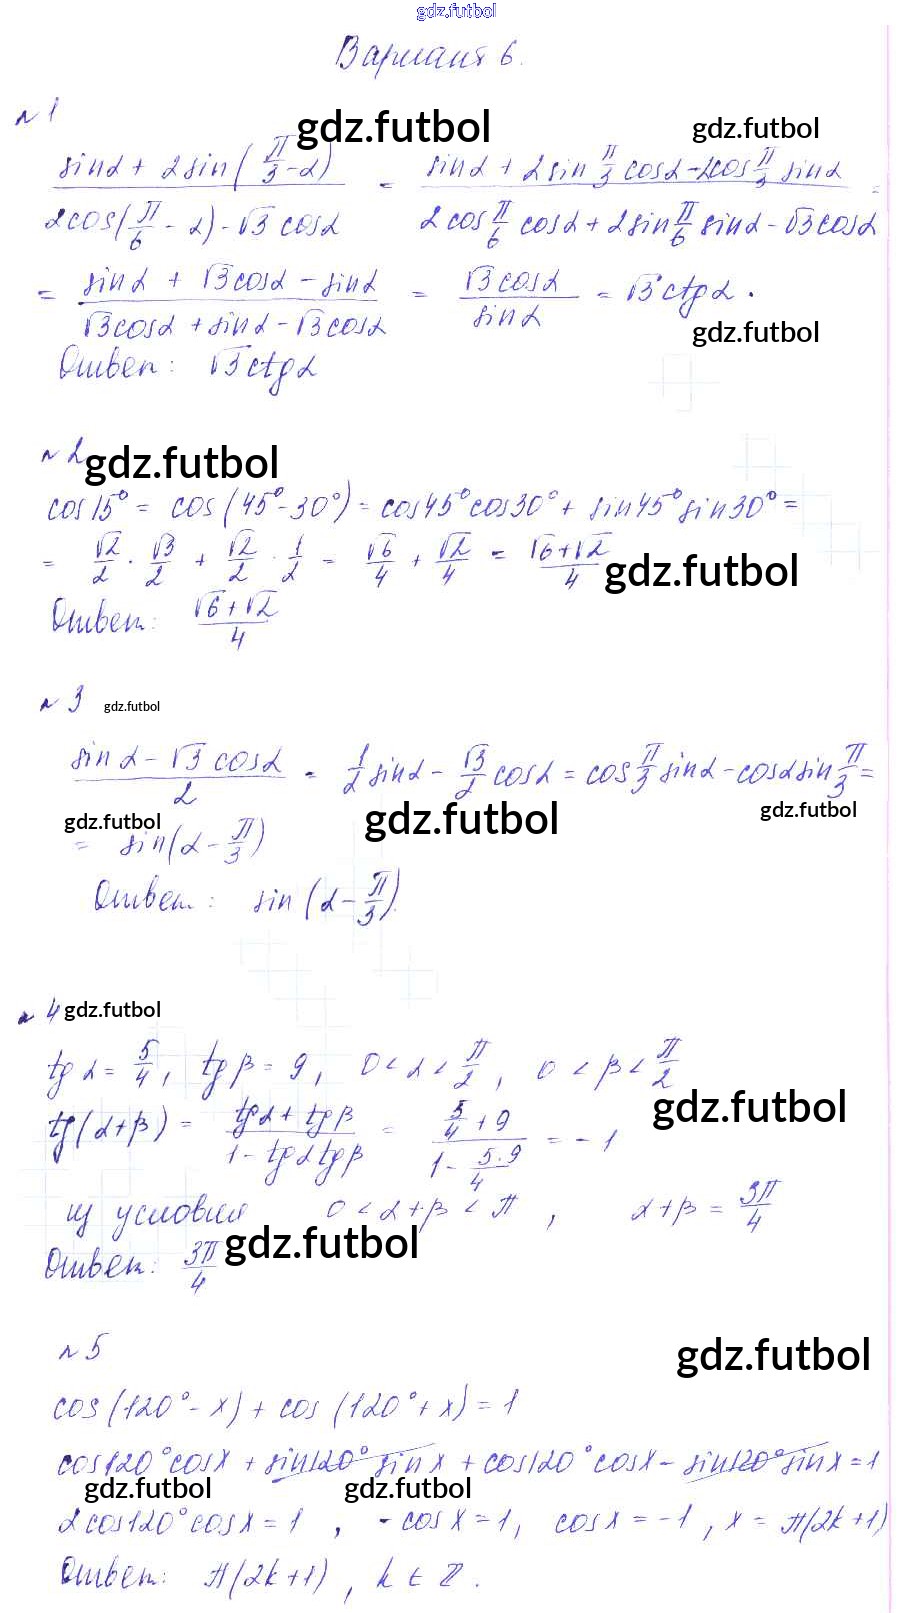 gdz.futbol
Вариант 6.
№1
gdz.futbol gdz.futbol
(sinα + 2sin(π/3 - α))/(2cos(π/6 - α) - √3 cosα) = (sinα + 2sin π/3 cosα - 2cos π/3 sinα)/(2cos π/6 cosα + 2sin π/6 sinα - √3 cosα) =
= (sinα + √3cosα - sinα)/(√3cosα + sinα - √3cosα) = (√3cosα)/(sinα) = √3ctgα.
gdz.futbol
Ответ: √3ctgα
№2 gdz.futbol
cos15° = cos(45° - 30°) = cos45°cos30° + sin45°sin30° =
= √2/2 · √3/2 + √2/2 · 1/2 = √6/4 + √2/4 = (√6+√2)/4
gdz.futbol
Ответ: (√6+√2)/4
№3 gdz.futbol
(sinα - √3 cosα)/2 = 1/2 sinα - √3/2 cosα = cos π/3 sinα - cosα sin π/3 =
gdz.futbol gdz.futbol gdz.futbol
= sin(α - π/3)
Ответ: sin(α - π/3).
№4 gdz.futbol
tgα = 5/4, tgβ = 9, 0 < α < π/2, 0 < β < π/2
gdz.futbol
tg(α+β) = (tgα + tgβ)/(1 - tgα tgβ) = (5/4 + 9)/(1 - 5·9/4) = -1
из условия 0 < α+β < π, α+β = 3π/4
gdz.futbol
Ответ: 3π/4
№5
gdz.futbol
cos(120° - x) + cos(120° + x) = 1
cos120°cosx + sin120° sinx + cos120°cosx - sin120°sinx = 1
gdz.futbol gdz.futbol
2cos120°cosx = 1, -cosx = 1, cosx = -1, x = π(2k+1)
Ответ: π(2k+1), k ∈ Z.